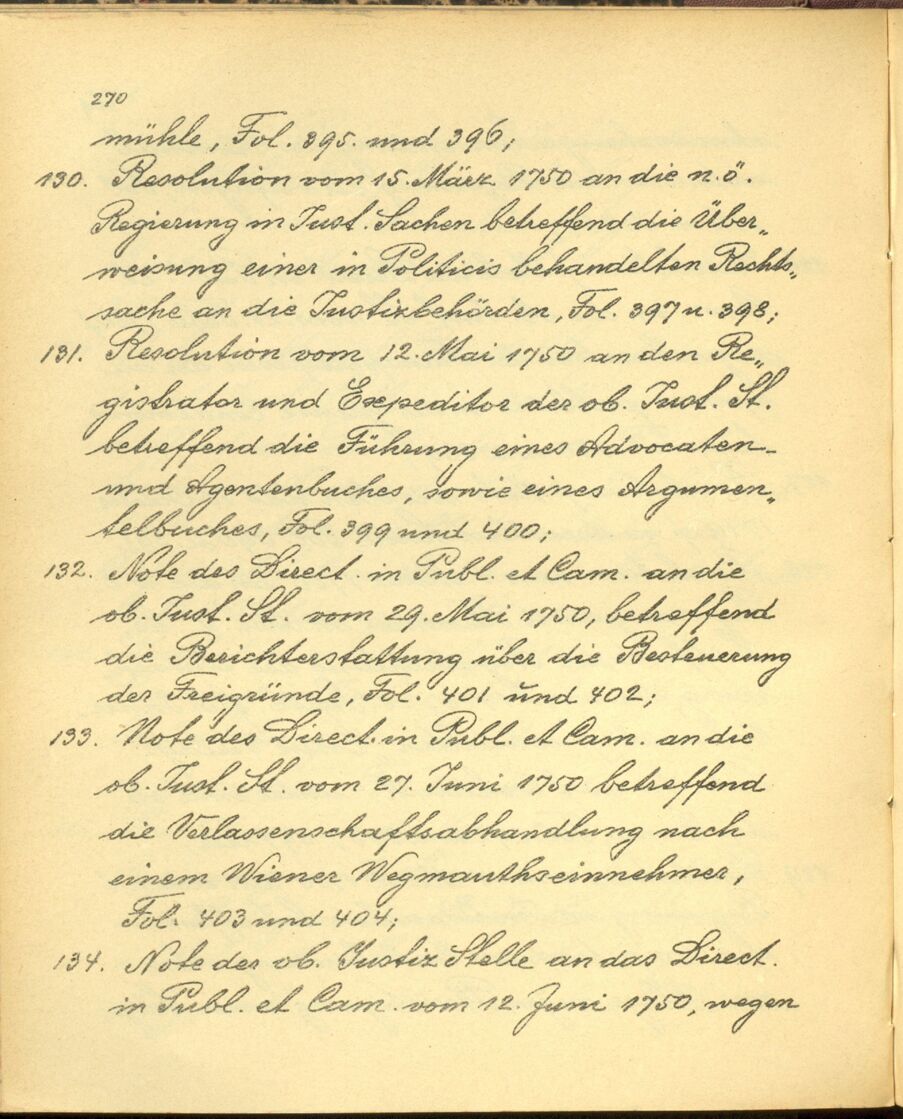 270
mühle, Fol. 395. und 396;
130. Resolution vom 15. März 1750 an die n. ö.
Regierung in Just. Sachen betreffend die Über„
weisung einer in Politicis behandelten Rechts„
sache an die Justizbehörden, Fol. 397 u. 398;
131. Resolution vom 12. Mai 1750 an den Re„
gistrator und Expeditor der ob. Just. St.
betreffend die Führung eines Advocaten-
und Agentenbuches, sowie eines Argumen„
telbuches, Fol. 399 und 400;
132. Note des Direct. in Publ. et Cam. an die
ob. Just. St. vom 29. Mai 1750, betreffend
die Berichterstattung über die Besteuerung
der Freigründe, Fol. 401 und 402;
133. Note des Direct. in Publ. et Cam. an die
ob. Just. St. vom 27. Juni 1750 betreffend
die Verlassenschaftsabhandlung nach
einem Wiener Wegmauthseinnehmer,
Fol. 403 und 404;
134. Note der ob. Justiz Stelle an das Direct.
in Publ. et Cam. vom 12. Juni 1750, wegen